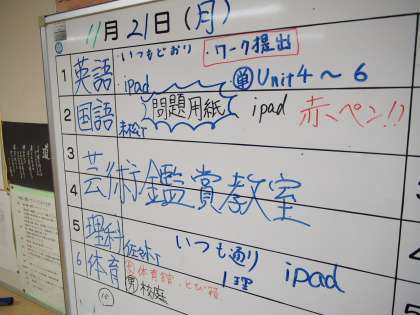 11月21日(月)
1 英語 いつもどおり ・ワーク提出
ipad 単 Unit4〜6
2 国語 問題用紙 ipad 赤ペン!!
3
4 芸術鑑賞教室
5 理科 いつも通り
1理 ipad
6 体育 女 体育館
男 校庭